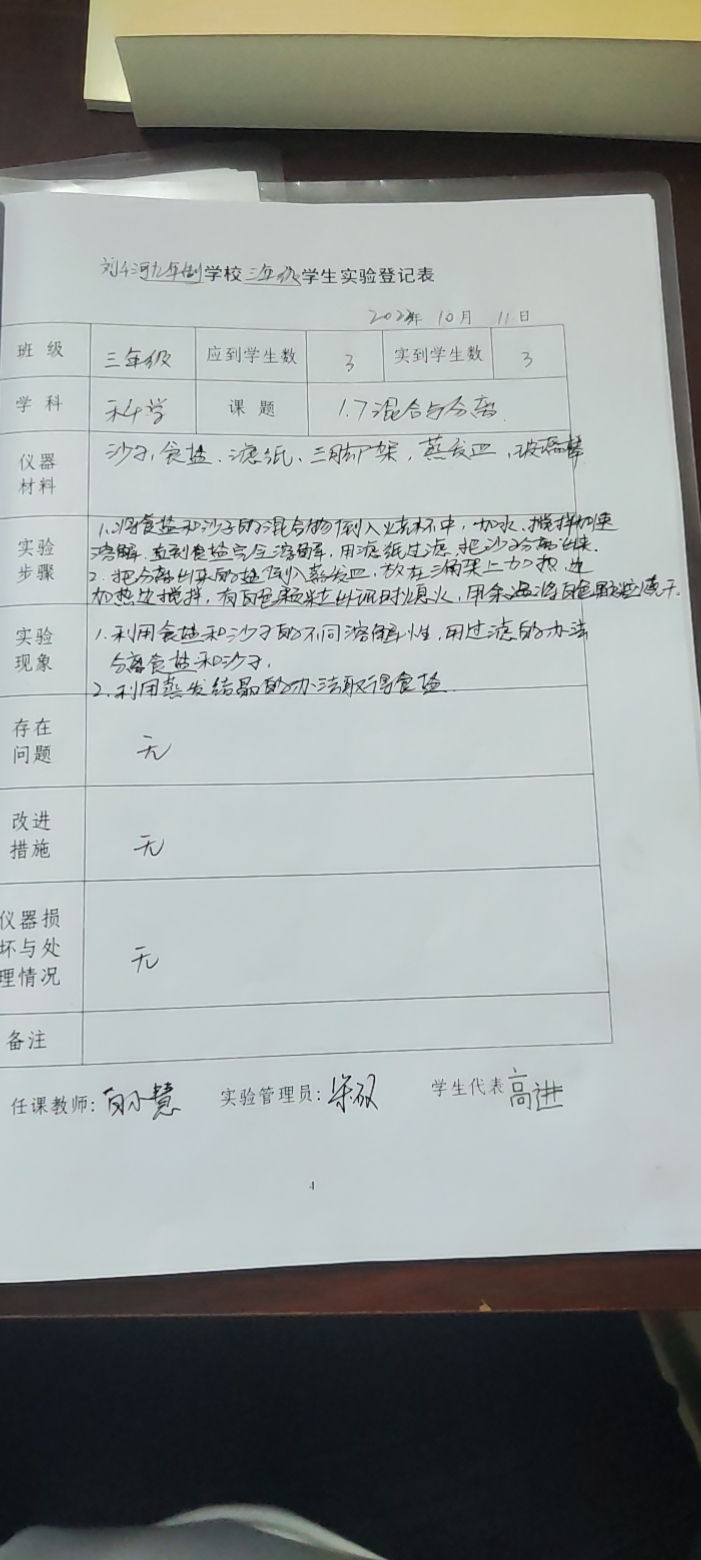 刘千河九年制学校三年级学生实验登记表
年 10月 11日
班级 三年级 应到学生数 3 实到学生数 3
学科 科学 课题 1.7混合与分离
仪器材料 沙子、食盐、滤纸、三脚架、蒸发皿、玻璃棒
实验步骤 1.将食盐和沙子的混合物倒入烧杯中,加水、搅拌加速
溶解,直到食盐完全溶解,用滤纸过滤,把沙子分离出来.
2.把分离出来的盐倒入蒸发皿,放在三脚架上加热,边
加热边搅拌,有白色颗粒出现时熄火,用余温将白色颗粒烧干.
实验现象 1.利用食盐和沙子的不同溶解性,用过滤的办法
分离食盐和沙子.
2.利用蒸发结晶的办法取得食盐
存在问题 无
改进措施 无
仪器损坏与处理情况 无
备注
任课教师: 实验管理员: 学生代表 高进
4